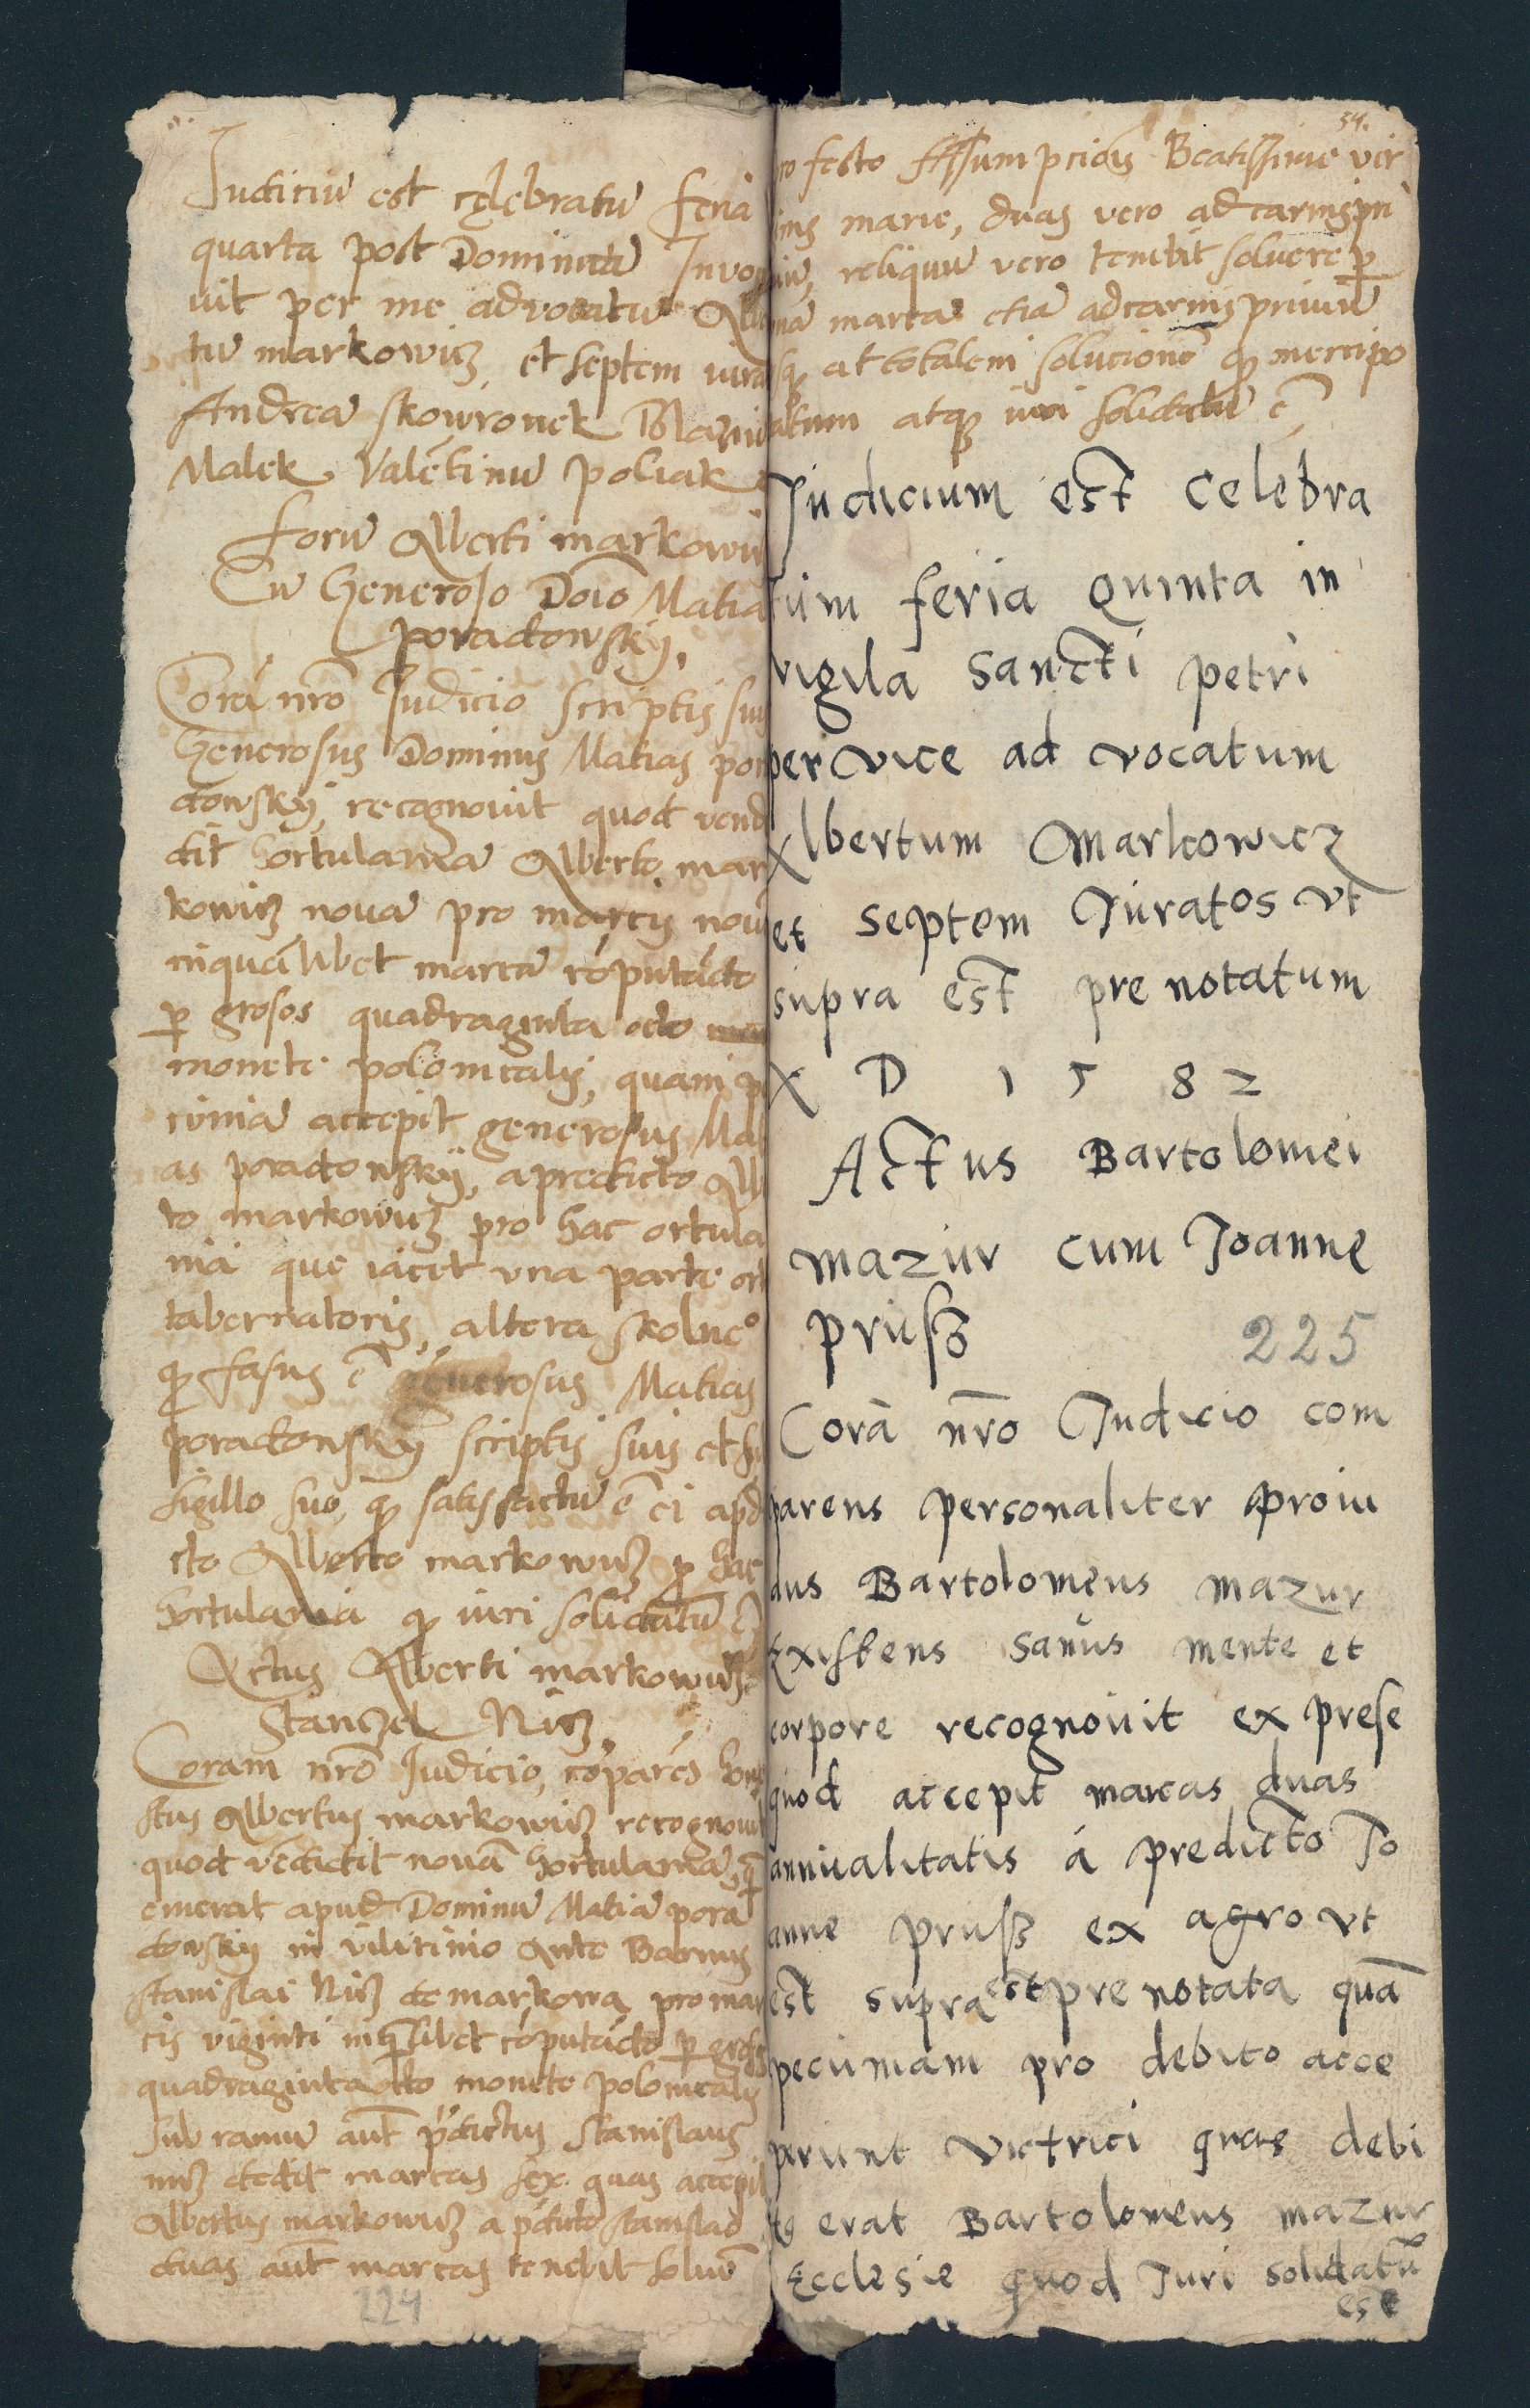 Iudiciū est celebratū feria
quarta post Dominicā Invo
uit per me advocatū Alb
tū markowicz, et septem iura
Andrea skowronek Blaziu
Malek Valētinū poliak
forū Alberti markowi
Cū Generoso Doīo Matia
poradowskÿ,
Corā nrō Iudicio scriptis suis
Generosus Dominus Matias por
dowskÿ, recognouit quod vend
dit hortulaniā Alberto mar
kowicz nouā pro marcis nou
inquālibet marcā cōputādo
p grosos quadraginta octo
monete polonicalis, quam p
cuniā accepit generosus Mat
as poradowskÿ, apredicto Alb
to markowicz pro hac ortula
niā que iacet vna parte ort
tabernatoris, altera skolne°
qp fasus ē generosus Matias
poradowskÿ scriptis suis et
sigillo suo, qp satisfactū ē ei apd
cto Alberto markowicz p hac
hortulaniā qp iuri solidatū ē
Actus Alberti markowicz
Stanczel Nicz,
Coram nrō Iudicio, cōparēs hone
stus Albertus markowicz recognouit
quod vēdidit nouā hortulaniā, q
emerat apud Dominū Matiā pora
dowskÿ in vilicinio Ante Barnus
stanislai Nicz de markowa pro mar
cis viginti inqlibet cōputādo p gros
quadraginta octo monete polonicalis
Sub ramū aut pdictus stanislaus
nicz dedit marcas sex quas accepit
Albertus markowicz a pdicto stanislao
duas aut marcas tenebit soluē
224
54.
ro festo Assumpcionis Beatissime vir
inis marie, duas vero ad carnispri
iū, reliquū vero tenebit soluere p
nā marcā etiā ad carnispriuiū
sq at totalem solucionē qp mercipo
atum atqp iuri solidatū ē
Iudicium est Celebra
tum feria Quinta in
vigila Sancti petri
per vice ad vocatum
Albertum Markowicz
et septem Iuratos vt
supra est prenotatum
A D 1 5 8 2
Actus Bartolomei
mazur cum Ioanne
prusz
225
Corā nrō Iudicio com
parens personaliter proui
dus Bartolomeus mazur
Existens sanus mente et
corpore recognouit ex prese
quod accepit marcas duas
annualitatis á predicto Io
anne prusz ex agro vt
est supra est prenotata quā
pecuniam pro debito acce
perunt victrici quas debi
to erat Bartolomeus mazur
Ecclesie quod Iuri solidatū
est